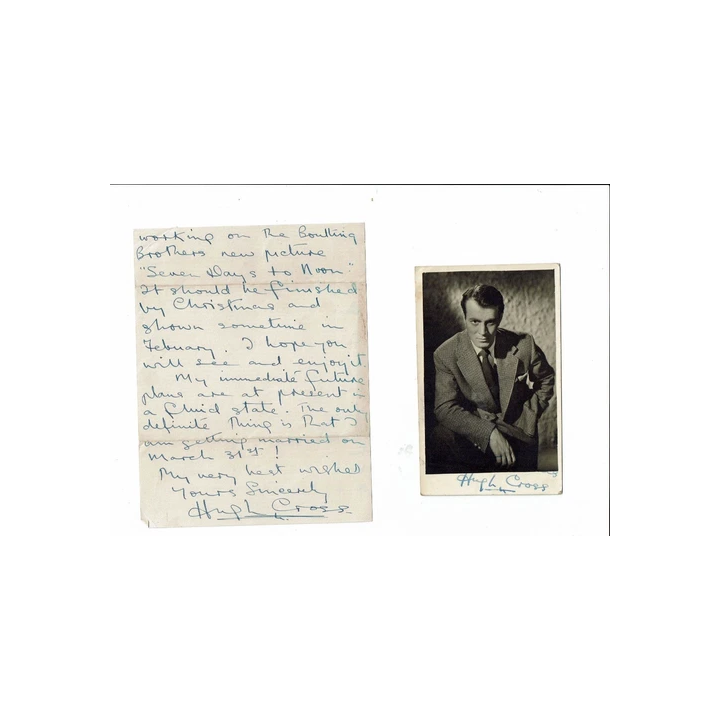 working on the Boulting
Brothers new picture
"Seven Days to Noon"
It should be finished
by Christmas and
shown sometime in
Febuary. I hope you
will see and enjoy it.
My immediate future
plans are at present in
a fluid state. The only
definite thing is that I
am getting married on
March 31st!
My very best wishes
Yours Sincerely
Hugh Cross
Hugh Cross